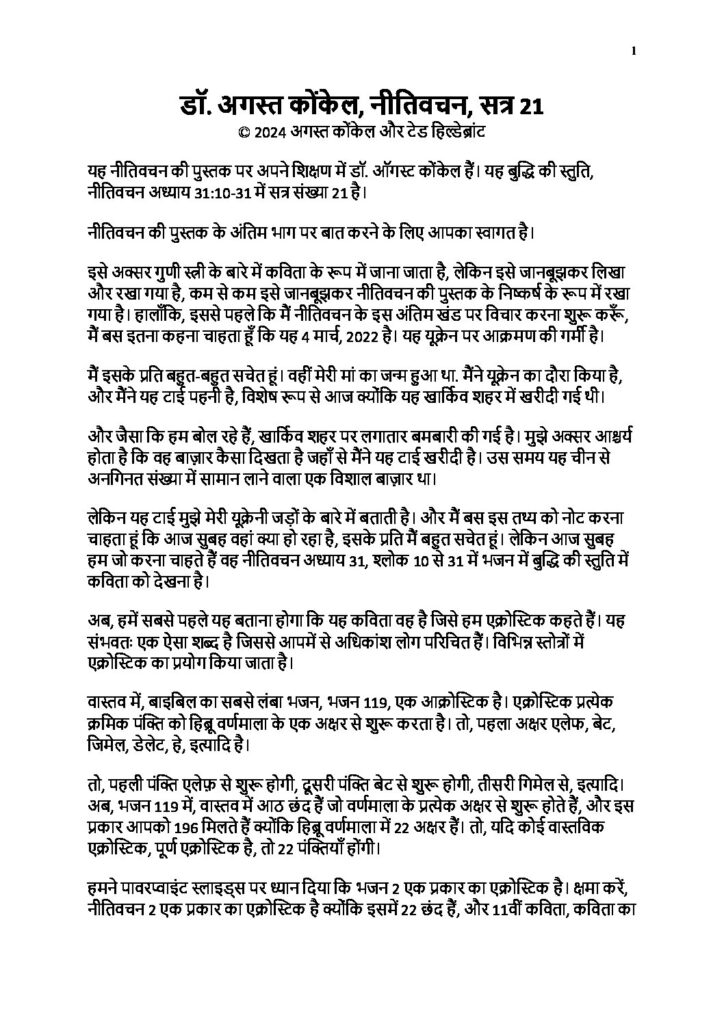 1
डॉ. अगस्त कोंकेल, नीतिवचन, सत्र 21
© 2024 अगस्त कोंकेल और टेड हिल्डेब्रांट
यह नीतिवचन की पुस्तक पर अपने शिक्षण में डॉ. ऑगस्ट कोंकेल हैं। यह बुद्धि की स्तुति,
नीतिवचन अध्याय 31:10-31 में सत्र संख्या 21 है।
नीतिवचन की पुस्तक के अंतिम भाग पर बात करने के लिए आपका स्वागत है।
इसे अक्सर गुणी स्त्री के बारे में कविता के रूप में जाना जाता है, लेकिन इसे जानबूझकर लिखा
और रखा गया है, कम से कम इसे जानबूझकर नीतिवचन की पुस्तक के निष्कर्ष के रूप में रखा
गया है। हालाँकि, इससे पहले कि मैं नीतिवचन के इस अंतिम खंड पर विचार करना शुरू करूँ,
मैं बस इतना कहना चाहता हूँ कि यह 4 मार्च, 2022 है। यह यूक्रेन पर आक्रमण की गर्मी है।
मैं इसके प्रति बहुत-बहुत सचेत हूं। वहीं मेरी मां का जन्म हुआ था. मैंने यूक्रेन का दौरा किया है,
और मैंने यह टाई पहनी है, विशेष रूप से आज क्योंकि यह खार्किव शहर में खरीदी गई थी।
और जैसा कि हम बोल रहे हैं, खार्किव शहर पर लगातार बमबारी की गई है। मुझे अक्सर आश्चर्य
होता है कि वह बाज़ार कैसा दिखता है जहाँ से मैंने यह टाई खरीदी है। उस समय यह चीन से
अनगिनत संख्या में सामान लाने वाला एक विशाल बाज़ार था।
लेकिन यह टाई मुझे मेरी यूक्रेनी जड़ों के बारे में बताती है। और मैं बस इस तथ्य को नोट करना
चाहता हूं कि आज सुबह वहां क्या हो रहा है, इसके प्रति मैं बहुत सचेत हूं। लेकिन आज सुबह
हम जो करना चाहते हैं वह नीतिवचन अध्याय 31, श्लोक 10 से 31 में भजन में बुद्धि की स्तुति में
कविता को देखना है।
अब, हमें सबसे पहले यह बताना होगा कि यह कविता वह है जिसे हम एक्रोस्टिक कहते हैं। यह
संभवतः एक ऐसा शब्द है जिससे आपमें से अधिकांश लोग परिचित हैं। विभिन्न स्तोत्रों में
एक्रोस्टिक का प्रयोग किया जाता है।
वास्तव में, बाइबिल का सबसे लंबा भजन, भजन 119, एक आक्रोस्टिक है। एक्रोस्टिक प्रत्येक
क्रमिक पंक्ति को हिब्रू वर्णमाला के एक अक्षर से शुरू करता है। तो, पहला अक्षर एलेफ, बेट,
जिमेल, डेलेट, हे, इत्यादि है।
तो, पहली पंक्ति एलेफ़ से शुरू होगी, दूसरी पंक्ति बेट से शुरू होगी, तीसरी गिमेल से, इत्यादि।
अब, भजन 119 में, वास्तव में आठ छंद हैं जो वर्णमाला के प्रत्येक अक्षर से शुरू होते हैं, और इस
प्रकार आपको 196 मिलते हैं क्योंकि हिब्रू वर्णमाला में 22 अक्षर हैं। तो, यदि कोई वास्तविक
एक्रोस्टिक, पूर्ण एक्रोस्टिक है, तो 22 पंक्तियाँ होंगी।
हमने पावरप्वाइंट स्लाइड्स पर ध्यान दिया कि भजन 2 एक प्रकार का एक्रोस्टिक है। क्षमा करें,
नीतिवचन 2 एक प्रकार का एक्रोस्टिक है क्योंकि इसमें 22 छंद हैं, और 11वीं कविता, कविता का